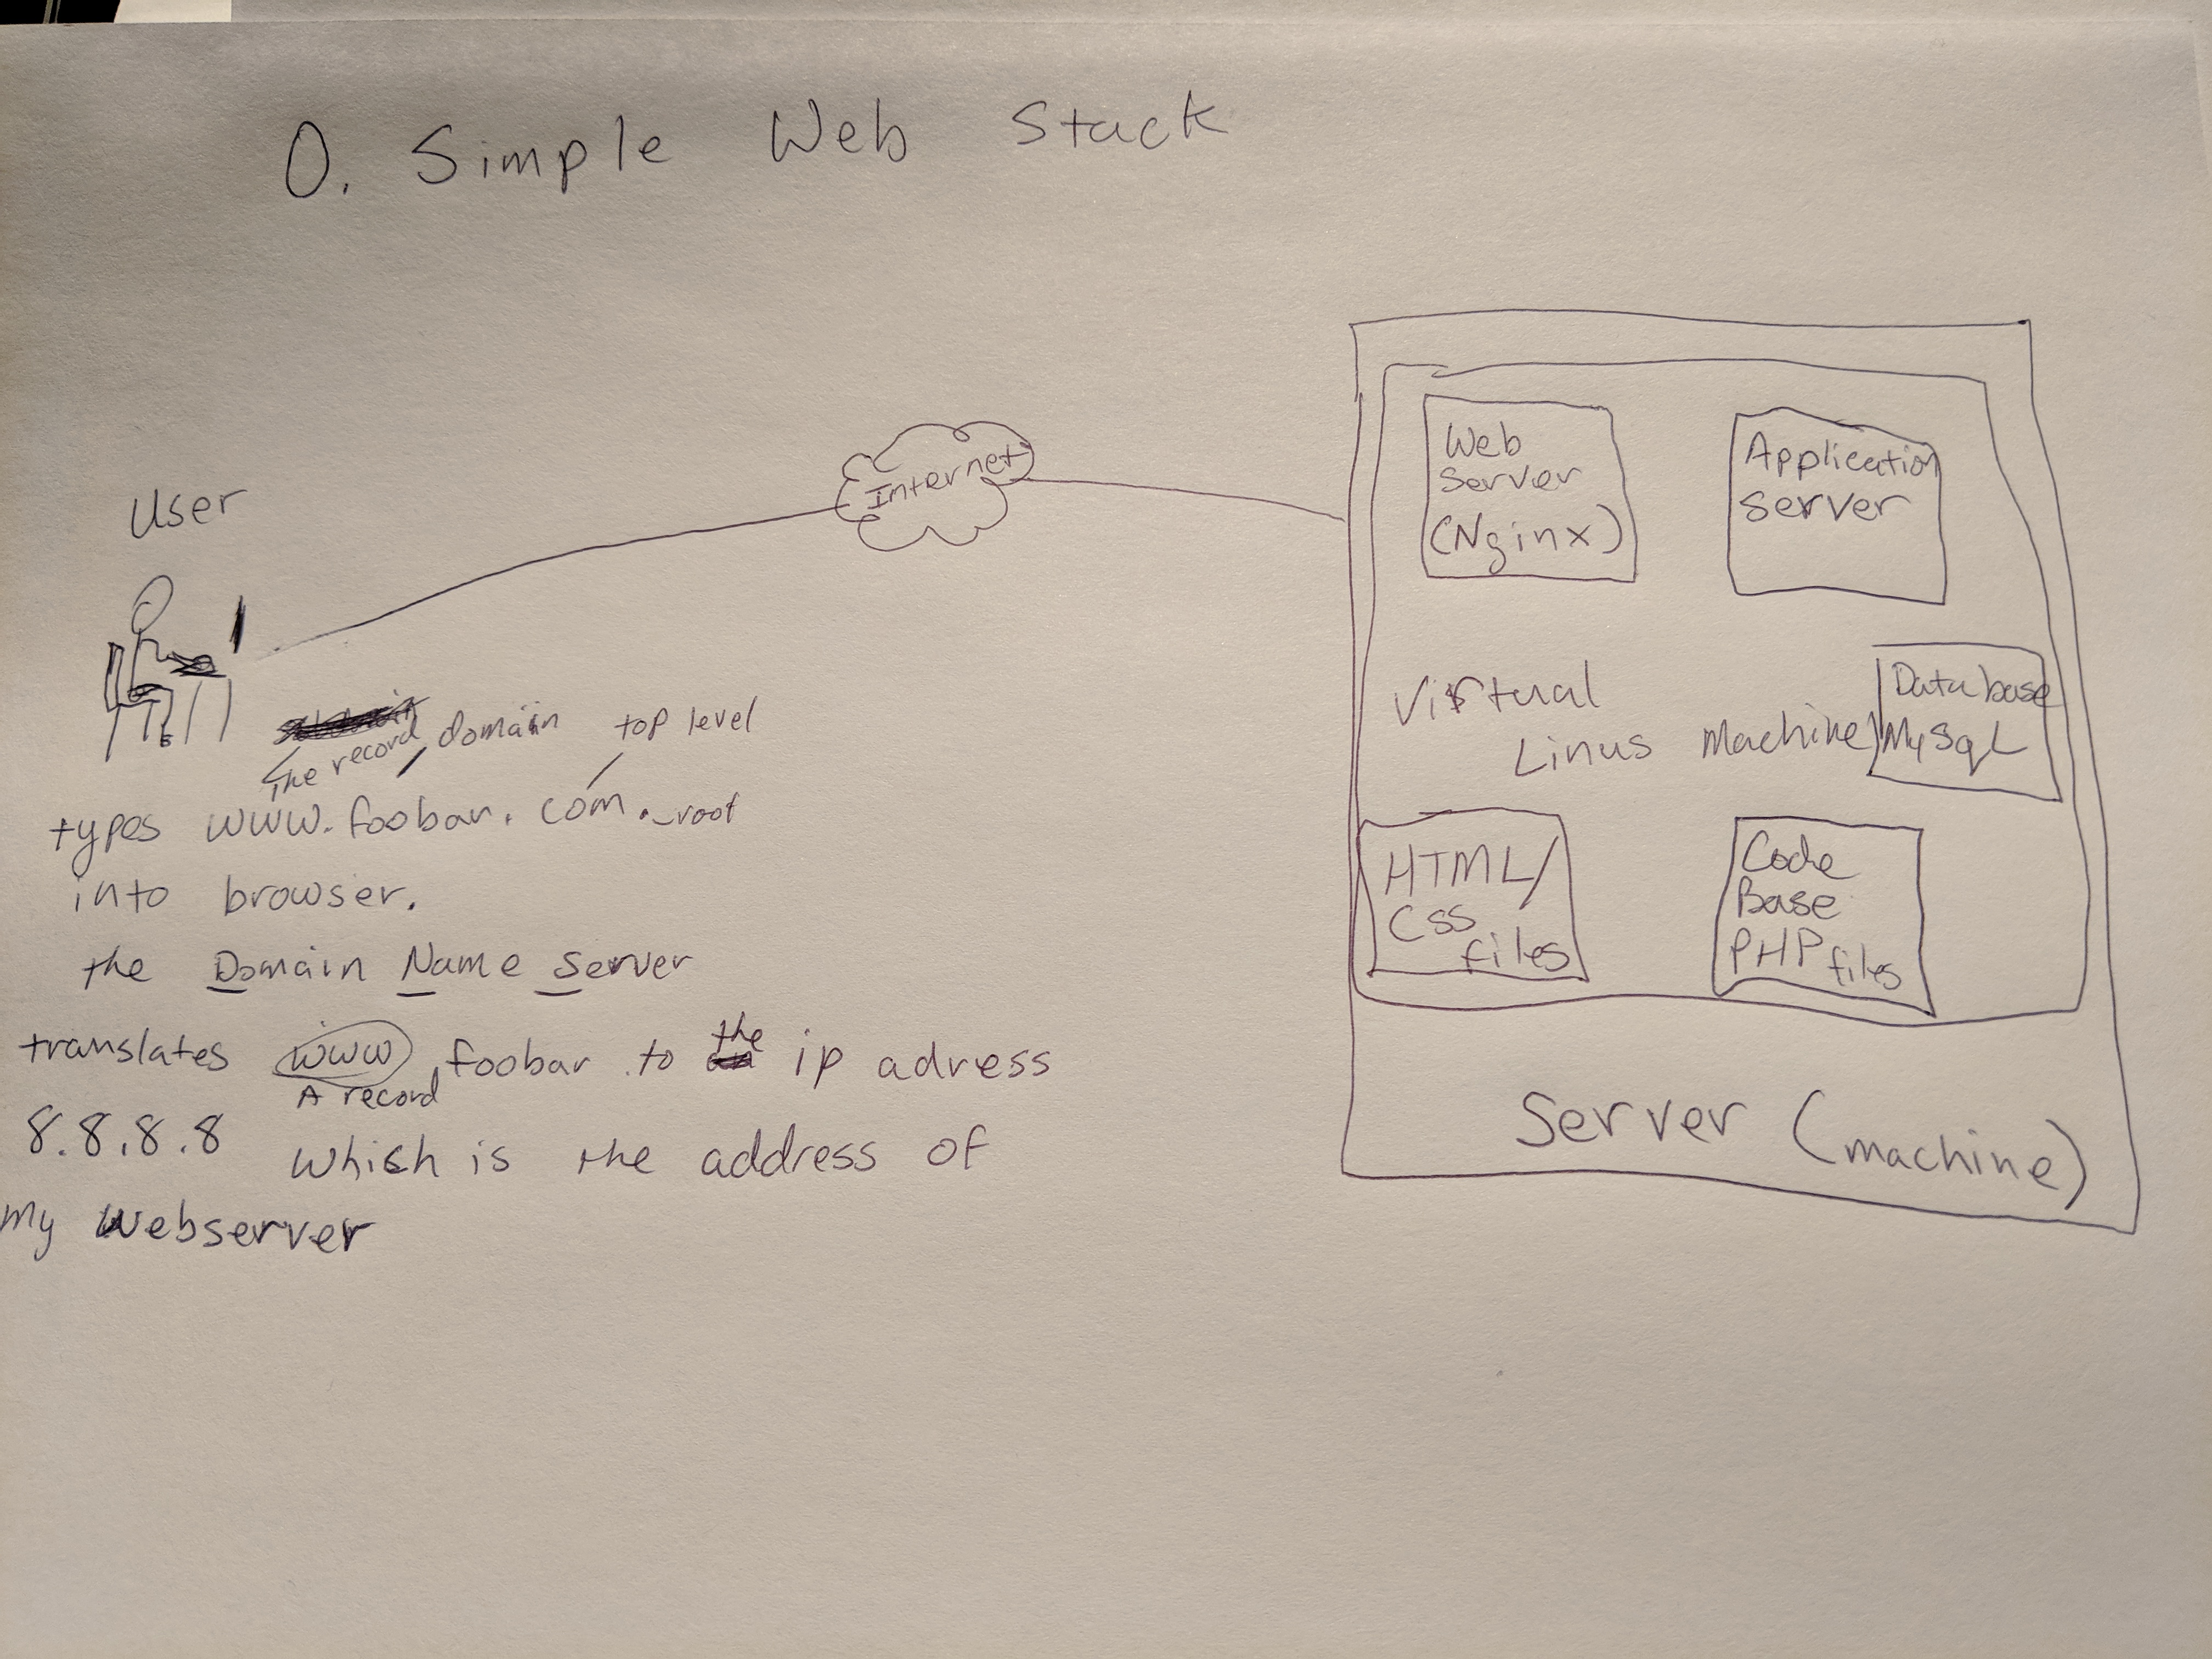 0. Simple Web Stack
User
Internet
the record domain top level
types www.foobar.com. root
into browser.
the Domain Name Server
translates www.foobar to the ip adress
A record
8.8.8.8 which is the address of
my webserver
Web
Server
(Nginx)
Application
Server
Virtual
Linus Machine
Database
MySqL
HTML/
CSS
files
Code
Base
PHP files
Server (machine)